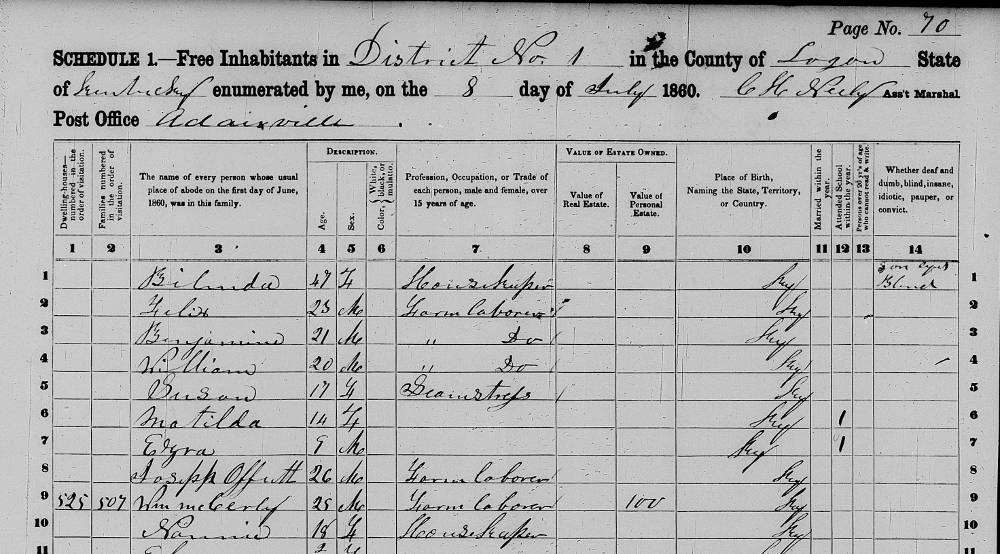 Page No. 70
SCHEDULE 1.—Free Inhabitants in District No. 1 in the County of Logan State
of Kentucky enumerated by me, on the 8 day of July 1860. C H Neely Ass't Marshal
Post Office Adairville .
Dwelling-houses—numbered in the order of visitation.
Families numbered in the order of visitation.
The name of every person whose usual place of abode on the first day of June, 1860, was in this family.
DESCRIPTION.
Age.
Sex.
Color, { White, black, or mulatto.
Profession, Occupation, or Trade of each person, male and female, over 15 years of age.
VALUE OF ESTATE OWNED.
Value of Real Estate.
Value of Personal Estate.
Place of Birth, Naming the State, Territory, or Country.
Married within the year.
Attended School within the year.
Persons over 20 y'rs of age who cannot read & write.
Whether deaf and dumb, blind, insane, idiotic, pauper, or convict.
1 2 3 4 5 6 7 8 9 10 11 12 13 14
1 Bilinda 47 F House Keeper Ky Blind 1
2 Felix 23 M Farm laborer Ky 2
3 Benjamine 21 M " Do Ky 3
4 William 20 M " Do Ky 4
5 Suson 17 F Seamstress Ky 5
6 Matilda 14 F Ky 1 6
7 Ezra 9 M Ky 1 7
8 Joseph Offutt 26 M Farm laborer Ky 8
9 525 507 Wm McCerly 25 M Farm laborer 100 Ky 9
10 Nannie 18 F House Keeper Ky 10
11 11